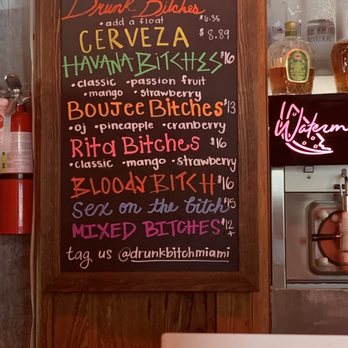 Drunk Bitches
• add a float $6.35
CERVEZA $8.89
HAVANA BITCHES $16
• classic • passion fruit
mango • strawberry
BOUJEE BITCHES $13
• oj • pineapple • cranberry
Rita Bitches $16
• classic • mango • strawberry
BLOODY BITCH $16
Sex on the bitch $15
MIXED BITCHES $12
+
tag us @drunkbitchmiami
Waterm